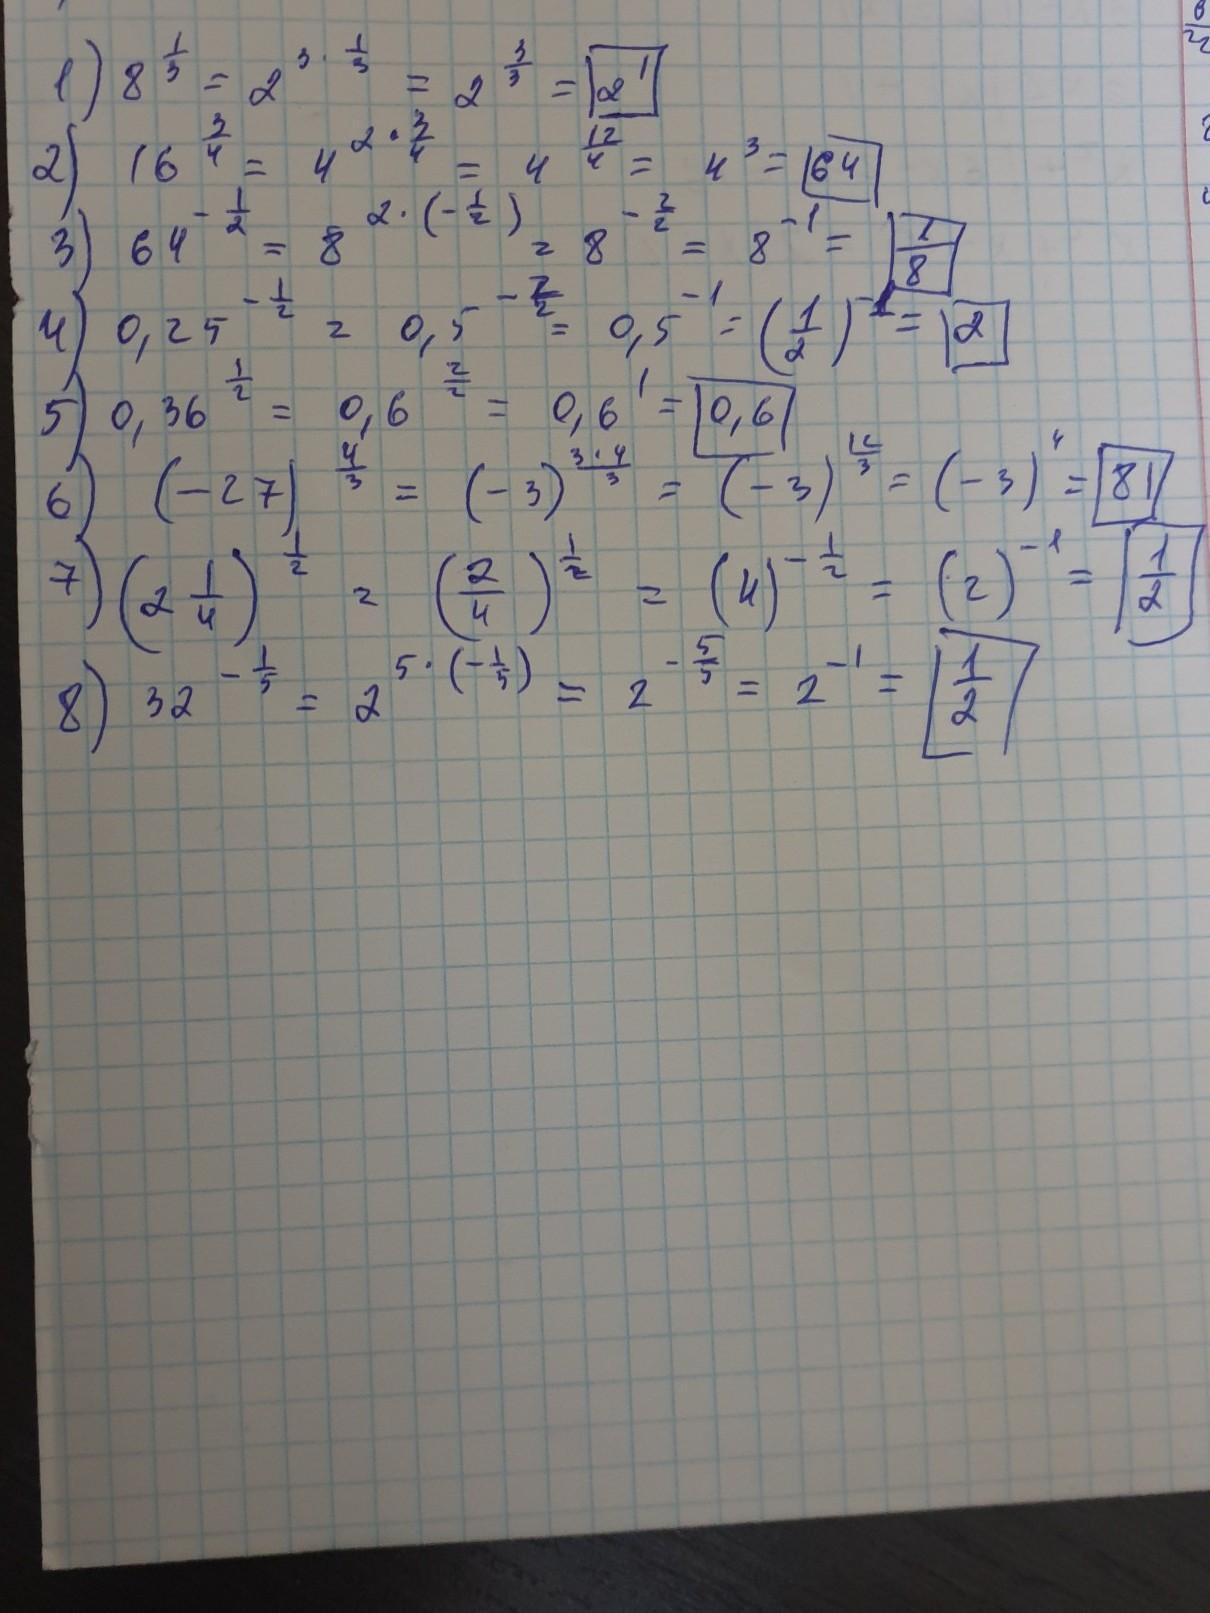 1) 8^(1/3) = 2^(3·1/3) = 2^(3/3) = 2^1
2) 16^(3/4) = 4^(2·3/4) = 4^(12/4) = 4^3 = 64
3) 64^(-1/2) = 8^(2·(-1/2)) = 8^(-2/2) = 8^(-1) = 1/8
4) 0,25^(-1/2) = 0,5^(-2/2) = 0,5^(-1) = (1/2)^(-1) = 2
5) 0,36^(1/2) = 0,6^(2/2) = 0,6^1 = 0,6
6) (-27)^(4/3) = (-3)^(3·4/3) = (-3)^(12/3) = (-3)^4 = 81
7) (2 1/4)^(1/2) = (2/4)^(1/2) = (4)^(-1/2) = (2)^(-1) = 1/2
8) 32^(-1/5) = 2^(5·(-1/5)) = 2^(-5/5) = 2^(-1) = 1/2